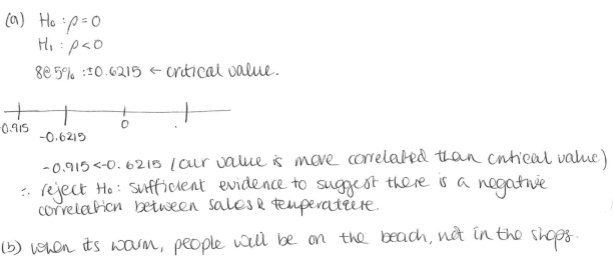 (a) H₀ : ρ=0
H₁ : ρ<0
8@5% : ±0.6215 ← critical value.
-0.915
-0.6215
0
-0.915<-0.6215 (our value is more correlated than critical value)
∴ reject H₀ : sufficient evidence to suggest there is a negative
correlation between sales & temperature.
(b) when its warm, people will be on the beach, not in the shops.